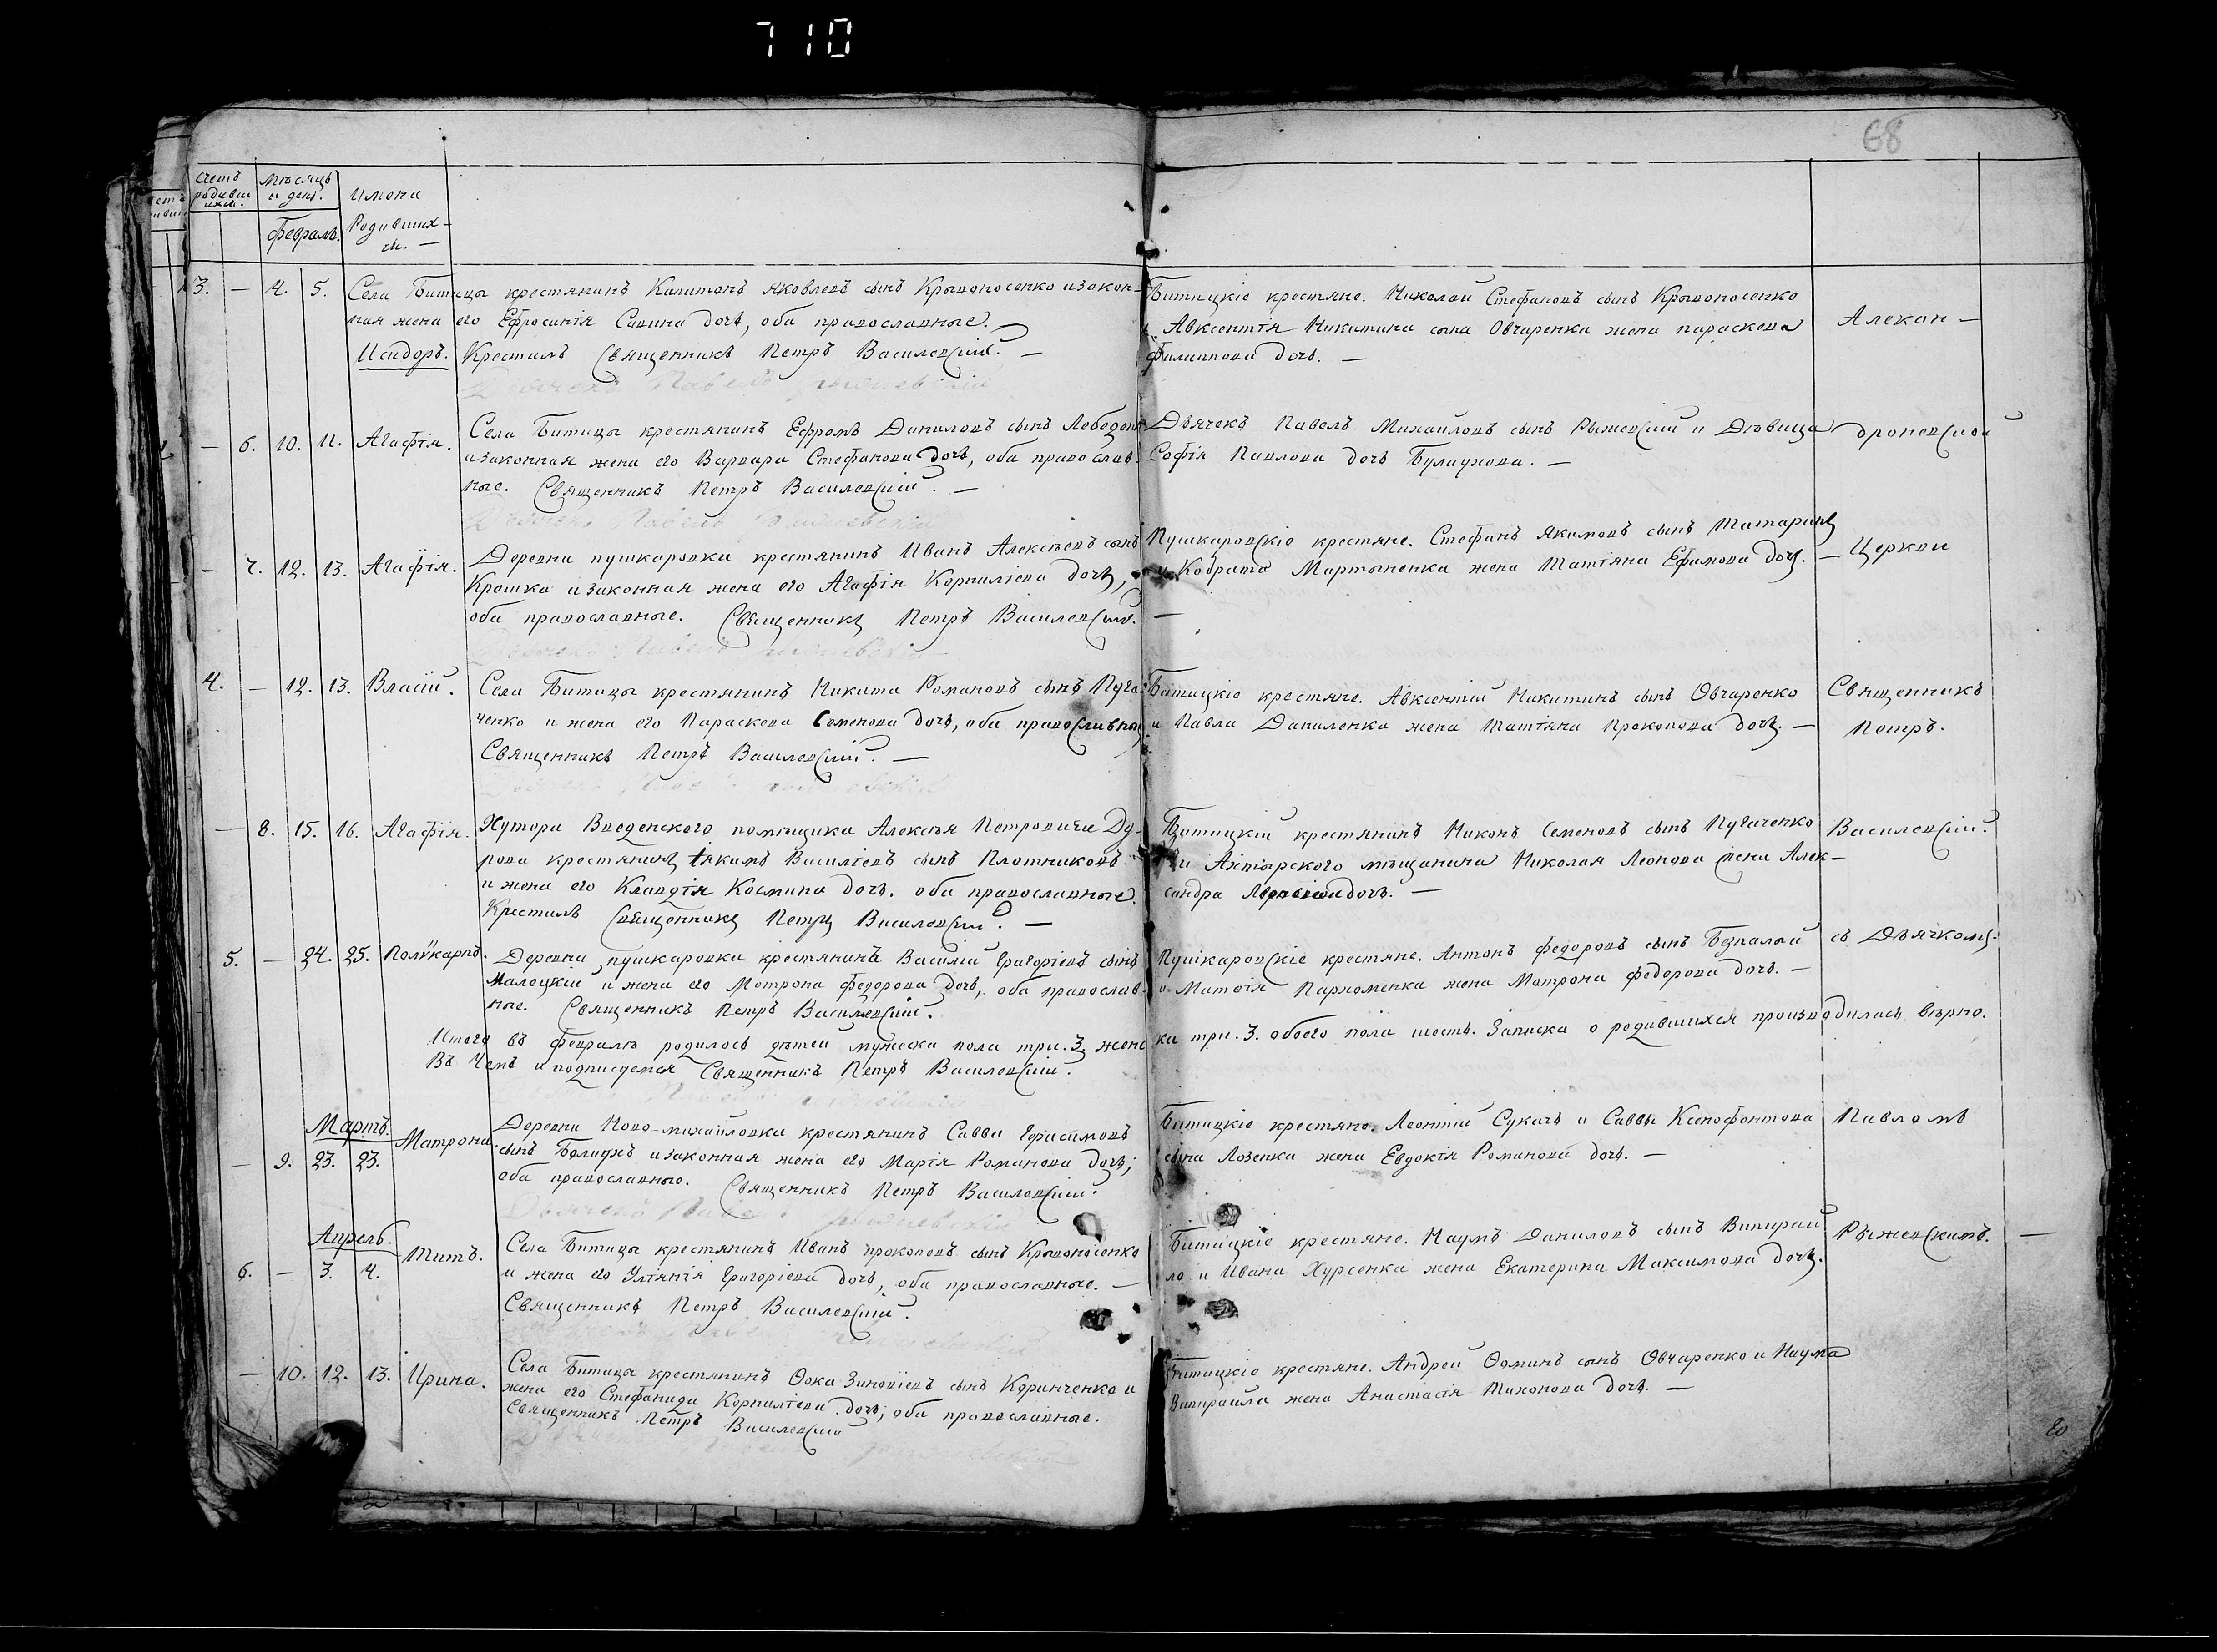 710
68
Счетъ родивши
ихся.
Мѣсяцъ
и день.
Имена
Родивших-
ся. —
Февраль.
3. — 4. 5. Села Битицы крестянинъ Капитонъ Яковлевъ сынъ Кривоносенко изакон-
ная жена его Ефросинія Савина дочь, оба православные. —
Исидоръ. Крестилъ Священникъ Петръ Василевскій. —
Битицкіе крестяне. Николай Стефановъ сынъ Кривоносенко
и Авксентія Никитина сына Овчаренка жена параскева
Филиппова дочь. —
Алексан —
— 6. 10. 11. Агафія. Села Битицы крестянинъ Ефремъ Даниловъ сынъ Лебедев
изаконная жена его Варвара Стефанова дочь, оба православ-
ные. Священникъ Петръ Василевскій. —
Дячекъ Павелъ Михайловъ сынъ Рыжевскій и Дѣвица
Софія Павлова дочь Булаухова. —
дроневской
— 7. 12. 13. Агафія. Деревни пушкаровки крестянинъ Иванъ Алексѣевъ сынъ
Крошка изаконная жена его Агафія Корниліева дочь,
оба православные. Священникъ Петръ Василевскій. —
Пушкаровскіе крестяне. Стефанъ Якимовъ сынъ Татаринъ
и Кодрата Мартыненка жена Татіяна Ефимова дочь. —
Церкви
4. — 12. 13. Власій. Села Битицы крестянинъ Никита Романовъ сынъ Пуга-
ченко и жена его Параскева Семенова дочь, оба православные
Священникъ Петръ Василевскій. —
Битицкіе крестяне. Авксентій Никитинъ сынъ Овчаренко
и Павла Даниленка жена Татіяна Прокопова дочь. —
Священникъ
Петръ.
— 8. 15. 16. Агафія. Хутора Введенского помѣщика Алексѣя Петровича Ду-
рова крестянинъ іякимъ Василіевъ сынъ Плотниковъ
и жена его Клавдія Космина дочь. оба православные.
Крестилъ Священникъ Петръ Василевскій. —
Битицкій крестянинъ Никонъ Семеновъ сынъ Пугаченко
и Ахтырского мѣщанина Николая Леонова жена Алек-
сандра дочь. —
Василевскій.
5. — 24. 25. Поликарпъ. Деревни пушкаровки крестянинъ Василій Григоріевъ сынъ
Малоцкій и жена его Матрона Федорова дочь, оба православ-
ные. Священникъ Петръ Василевскій.
Пушкаровскіе крестяне. Антонъ федоровъ сынъ Безпалый
и Матвія Пархоменка жена Матрона федорова дочь. —
съ Дьячкомъ.
Итого въ февралѣ родилось дѣтей мужеска пола три. 3, женс
ка три. 3. обоего пола шесть. Записка о родившихся производилась вѣрно.
Въ Чемъ и подписуемся Священникъ Петръ Василевскій.
Мартъ.
— 9. 23. 23. Матрона Деревни Ново-михайловки крестянинъ Савва Герасимовъ
сынъ Балаухъ изаконная жена его Марія Романова дочь;
оба православные. Священникъ Петръ Василевскій.
Битицкіе крестяне. Леонтій Сукачъ и Саввы Ксенофонтова
сына Лозенка жена Евдокія Романова дочь. —
Павломъ
Апрель.
6. — 3. 4. Титъ. Села Битицы крестянинъ Иванъ прокоповъ сынъ Кривоносенко
и жена его Уліянія Григоріева дочь, оба православные. —
Священникъ Петръ Василевскій.
Битицкіе крестяне. Наумъ Даниловъ сынъ Випирай
ло и Ивана Хурсенка жена Екатерина Максимова дочь.
Рыжевскимъ. —
— 10. 12. 13. Ирина. Села Битицы крестянинъ Фока Зиновіевъ сынъ Коринченко и
жена его Стефанида Корниліева дочь; оба православные.
Священникъ Петръ Василевскій
Битицкіе крестяне. Андрей Фоминъ сынъ Овчаренко и Наума
Випирайла жена Анастасія Тихонова дочь. —